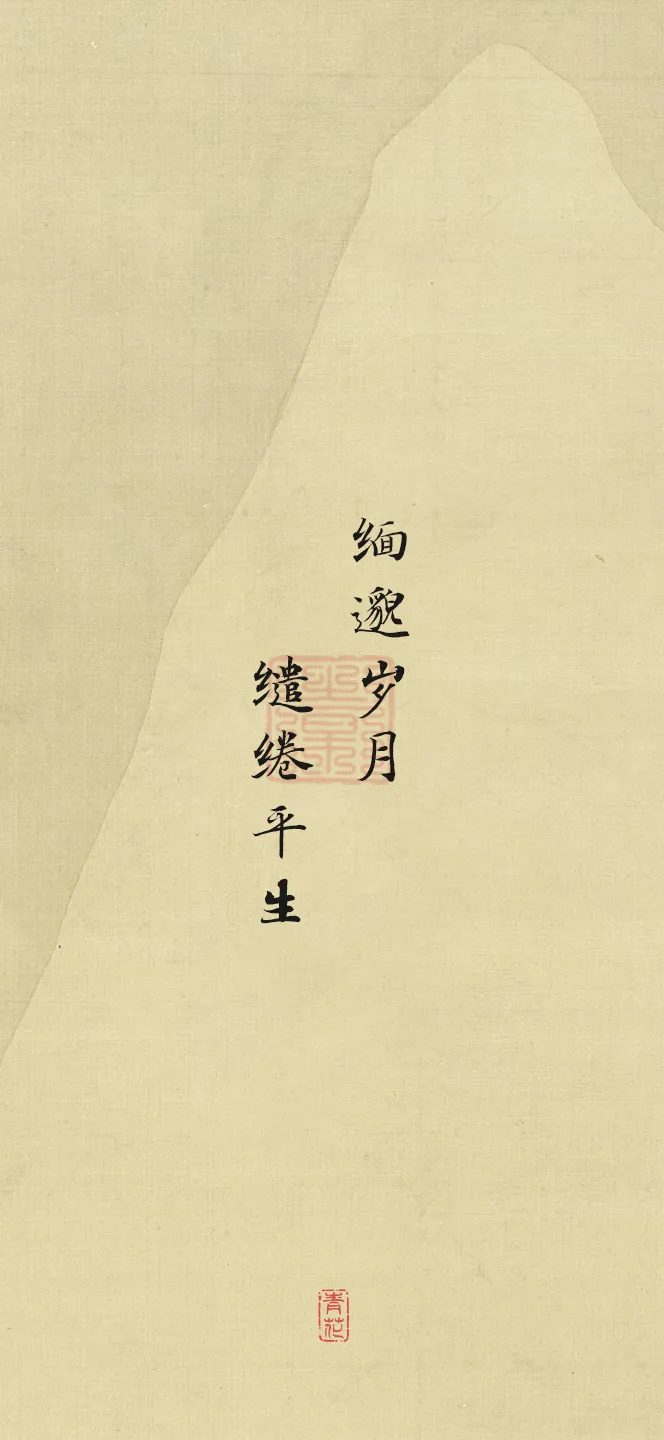 缅邈岁月
缱绻平生
青花